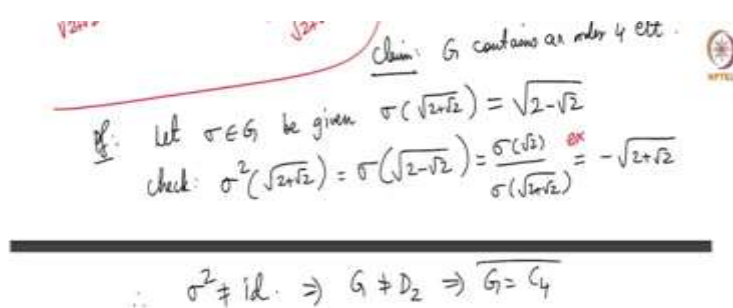 √2+√2 √2+√
Claim: G contains an order 4 elt.
NPTEL
Pf: Let σ∈G be given σ(√(2+√2)) = √(2-√2)
check: σ²(√(2+√2)) = σ(√(2-√2)) = σ(√2)/σ(√(2+√2)) ex = -√(2+√2)
∴ σ² ≠ id. ⇒ G ≠ D₂ ⇒ G = C₄